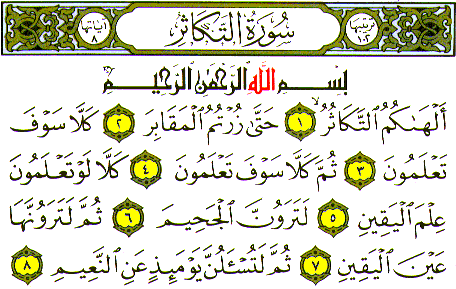 ترتيبها ١٠٢ سُورَةُ التَّكَاثُرِ آياتها ٨
بِسْمِ اللَّهِ الرَّحْمَٰنِ الرَّحِيمِ
أَلْهَىٰكُمُ التَّكَاثُرُ ۝١ حَتَّىٰ زُرْتُمُ الْمَقَابِرَ ۝٢ كَلَّا سَوْفَ
تَعْلَمُونَ ۝٣ ثُمَّ كَلَّا سَوْفَ تَعْلَمُونَ ۝٤ كَلَّا لَوْ تَعْلَمُونَ
عِلْمَ الْيَقِينِ ۝٥ لَتَرَوُنَّ الْجَحِيمَ ۝٦ ثُمَّ لَتَرَوُنَّهَا
عَيْنَ الْيَقِينِ ۝٧ ثُمَّ لَتُسْـَٔلُنَّ يَوْمَئِذٍ عَنِ النَّعِيمِ ۝٨